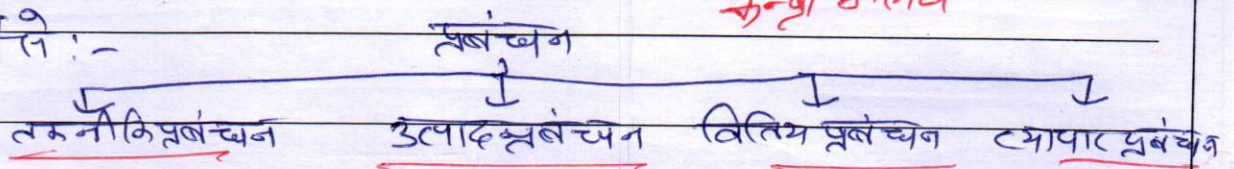 से :- प्रबंधन
तकनीकि प्रबंधन उत्पाद प्रबंधन वितिय प्रबंधन व्यापार प्रबंधन